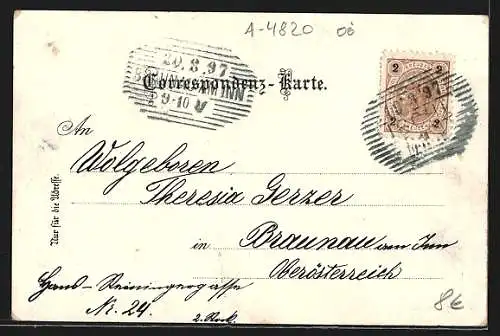 A-4820 OÖ
20.8.97
BRAUNAU AM INN
9-10 V
Correspondenz-Karte.
2 2
An
Wolgeboren
Theresia Gerzer
in Braunau am Inn
Oberösterreich
Hans-Reiningergasse
Nr. 24.
2. Stock
Nur für die Adresse.
8€